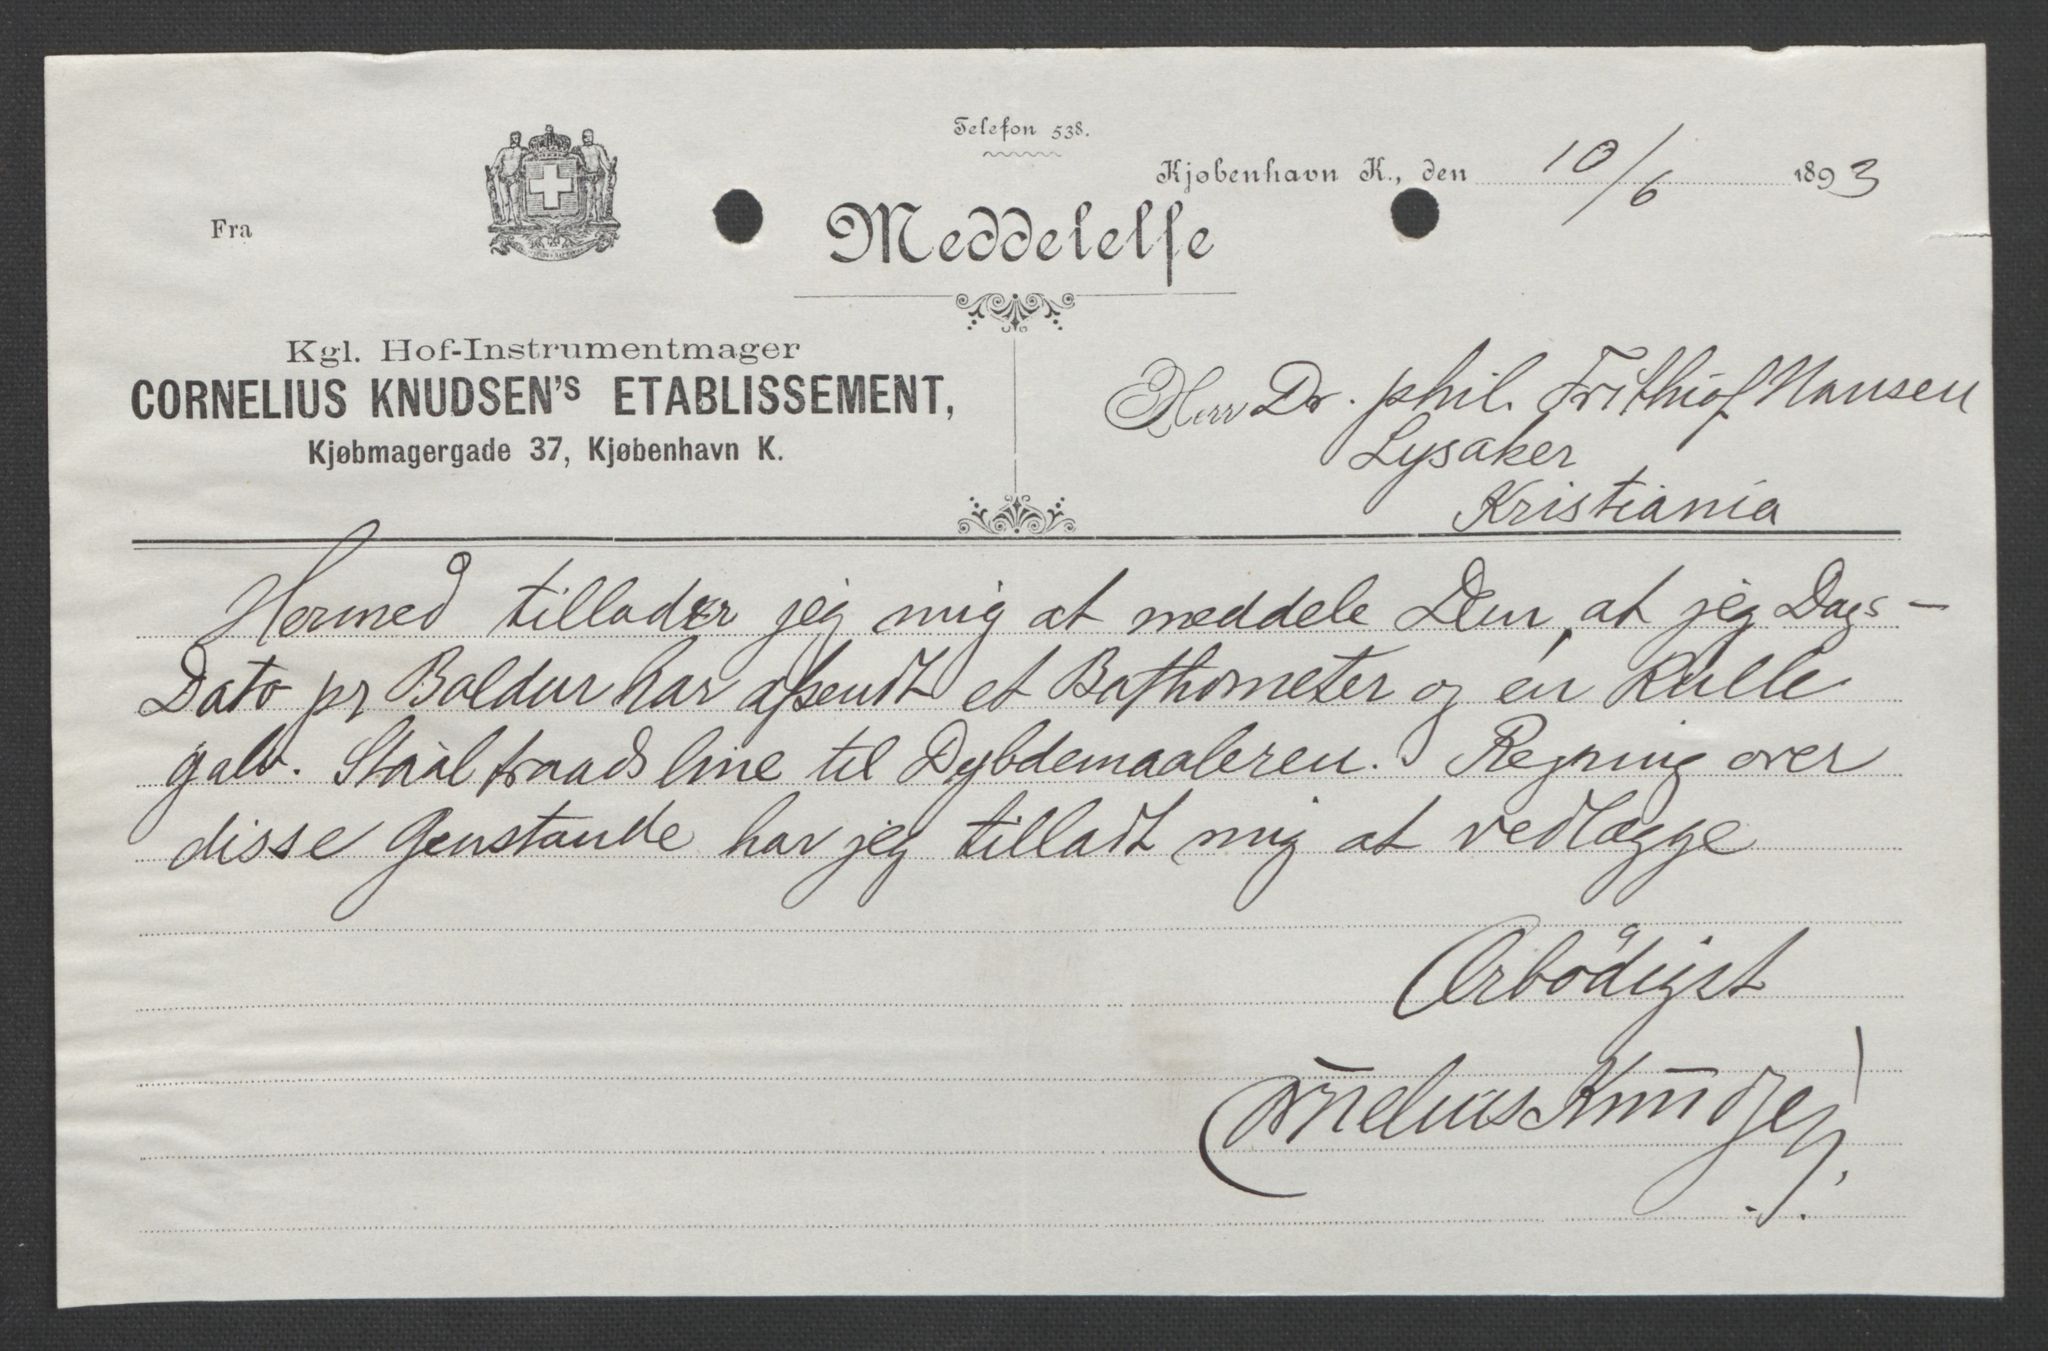 Telefon 538.
Kjøbenhavn K., den 10/6 1893
Fra
Meddelelse
Kgl. Hof-Instrumentmager
CORNELIUS KNUDSEN's ETABLISSEMENT,
Kjøbmagergade 37, Kjøbenhavn K.
Herr Dr. phil. Frithiof Nansen
Lysaker
Kristiania
Hermed tillader jeg mig at meddele Dem, at jeg Dags-
Dato pr Baldur har afsendt et Bathometer og en Rulle
galv. Staaltraadsline til Dybdemaaleren. Regning over
disse Genstande har jeg tilladt mig at vedlægge
Ærbødigst
Cornelius Knudsen